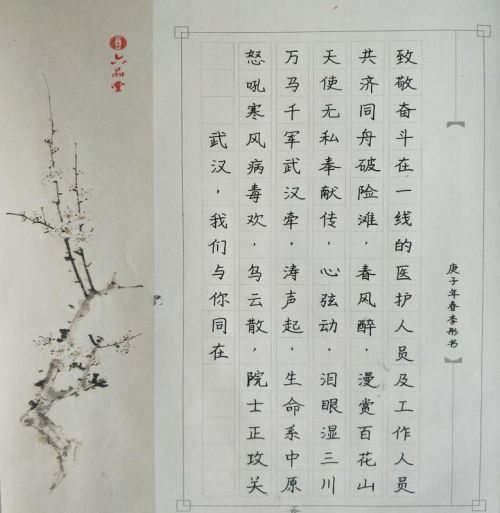 庚子年春李彤书
致敬奋斗在一线的医护人员及工作人员
共济同舟破险滩，春风醉，漫赏百花山
天使无私奉献传，心弦动，泪眼湿三川
万马千军武汉牵，涛声起，生命系中原
怒吼寒风病毒欢，乌云散，院士正攻关
武汉，我们与你同在
六品堂